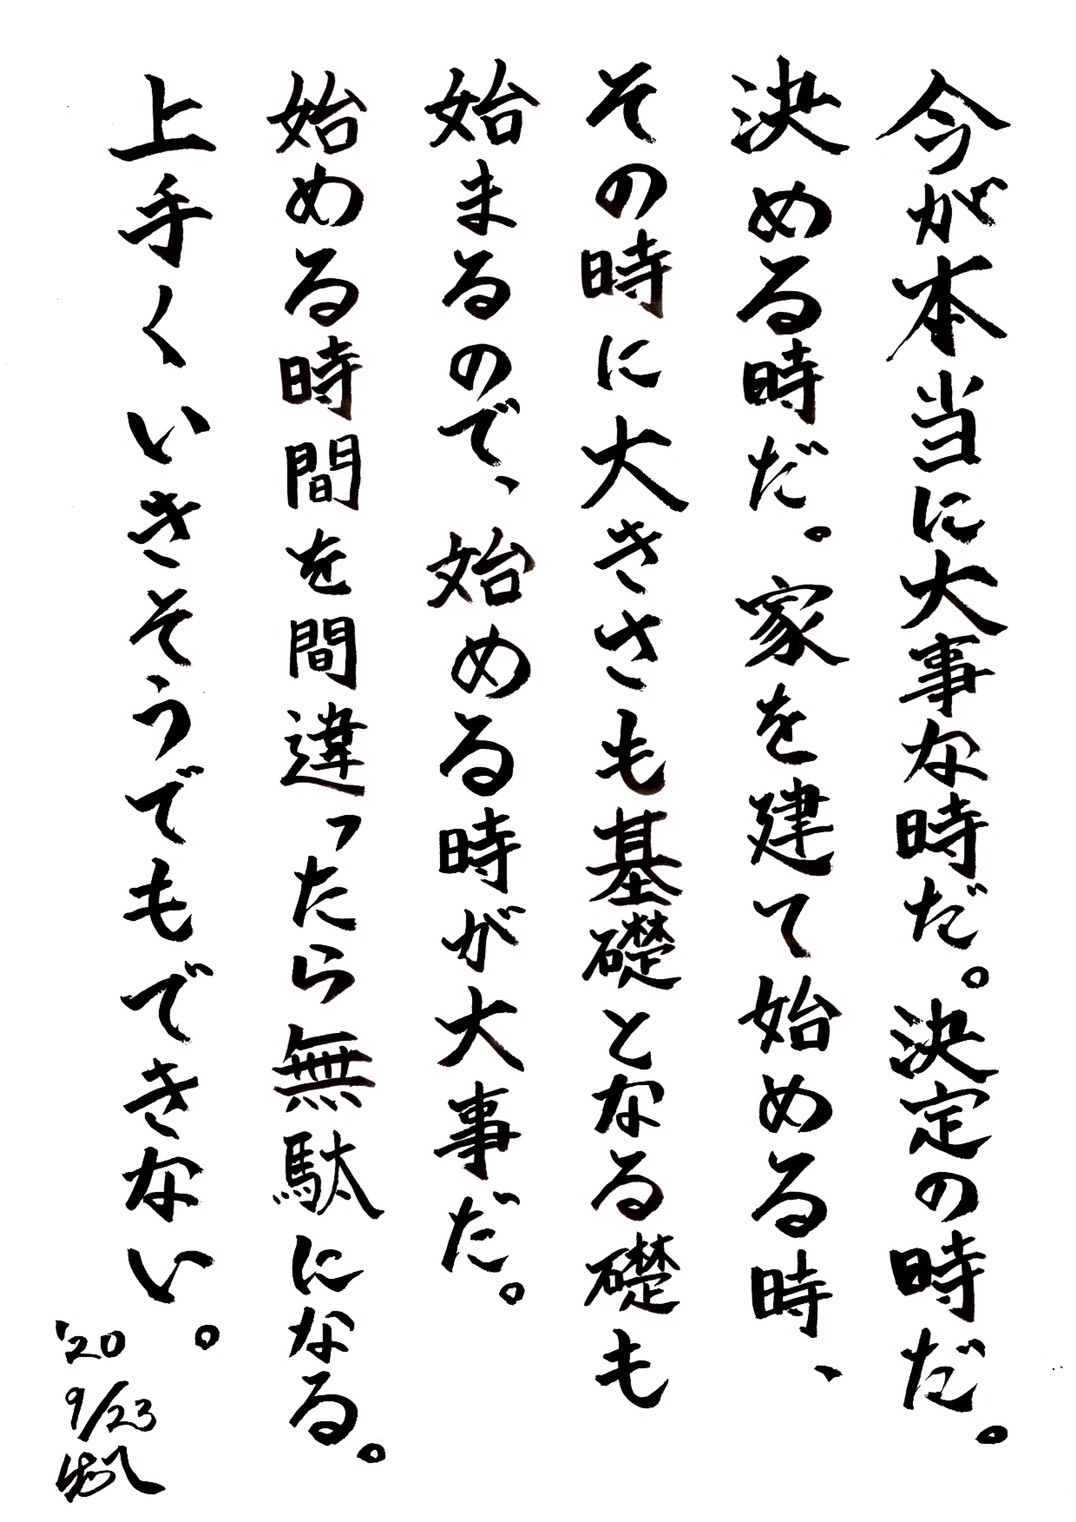 今が本当に大事な時だ。決定の時だ。
決める時だ。家を建て始める時、
その時に大きさも基礎となる礎も
始まるので、始める時が大事だ。
始める時間を間違ったら無駄になる。
上手くいきそうでもできない。
'20
9/23